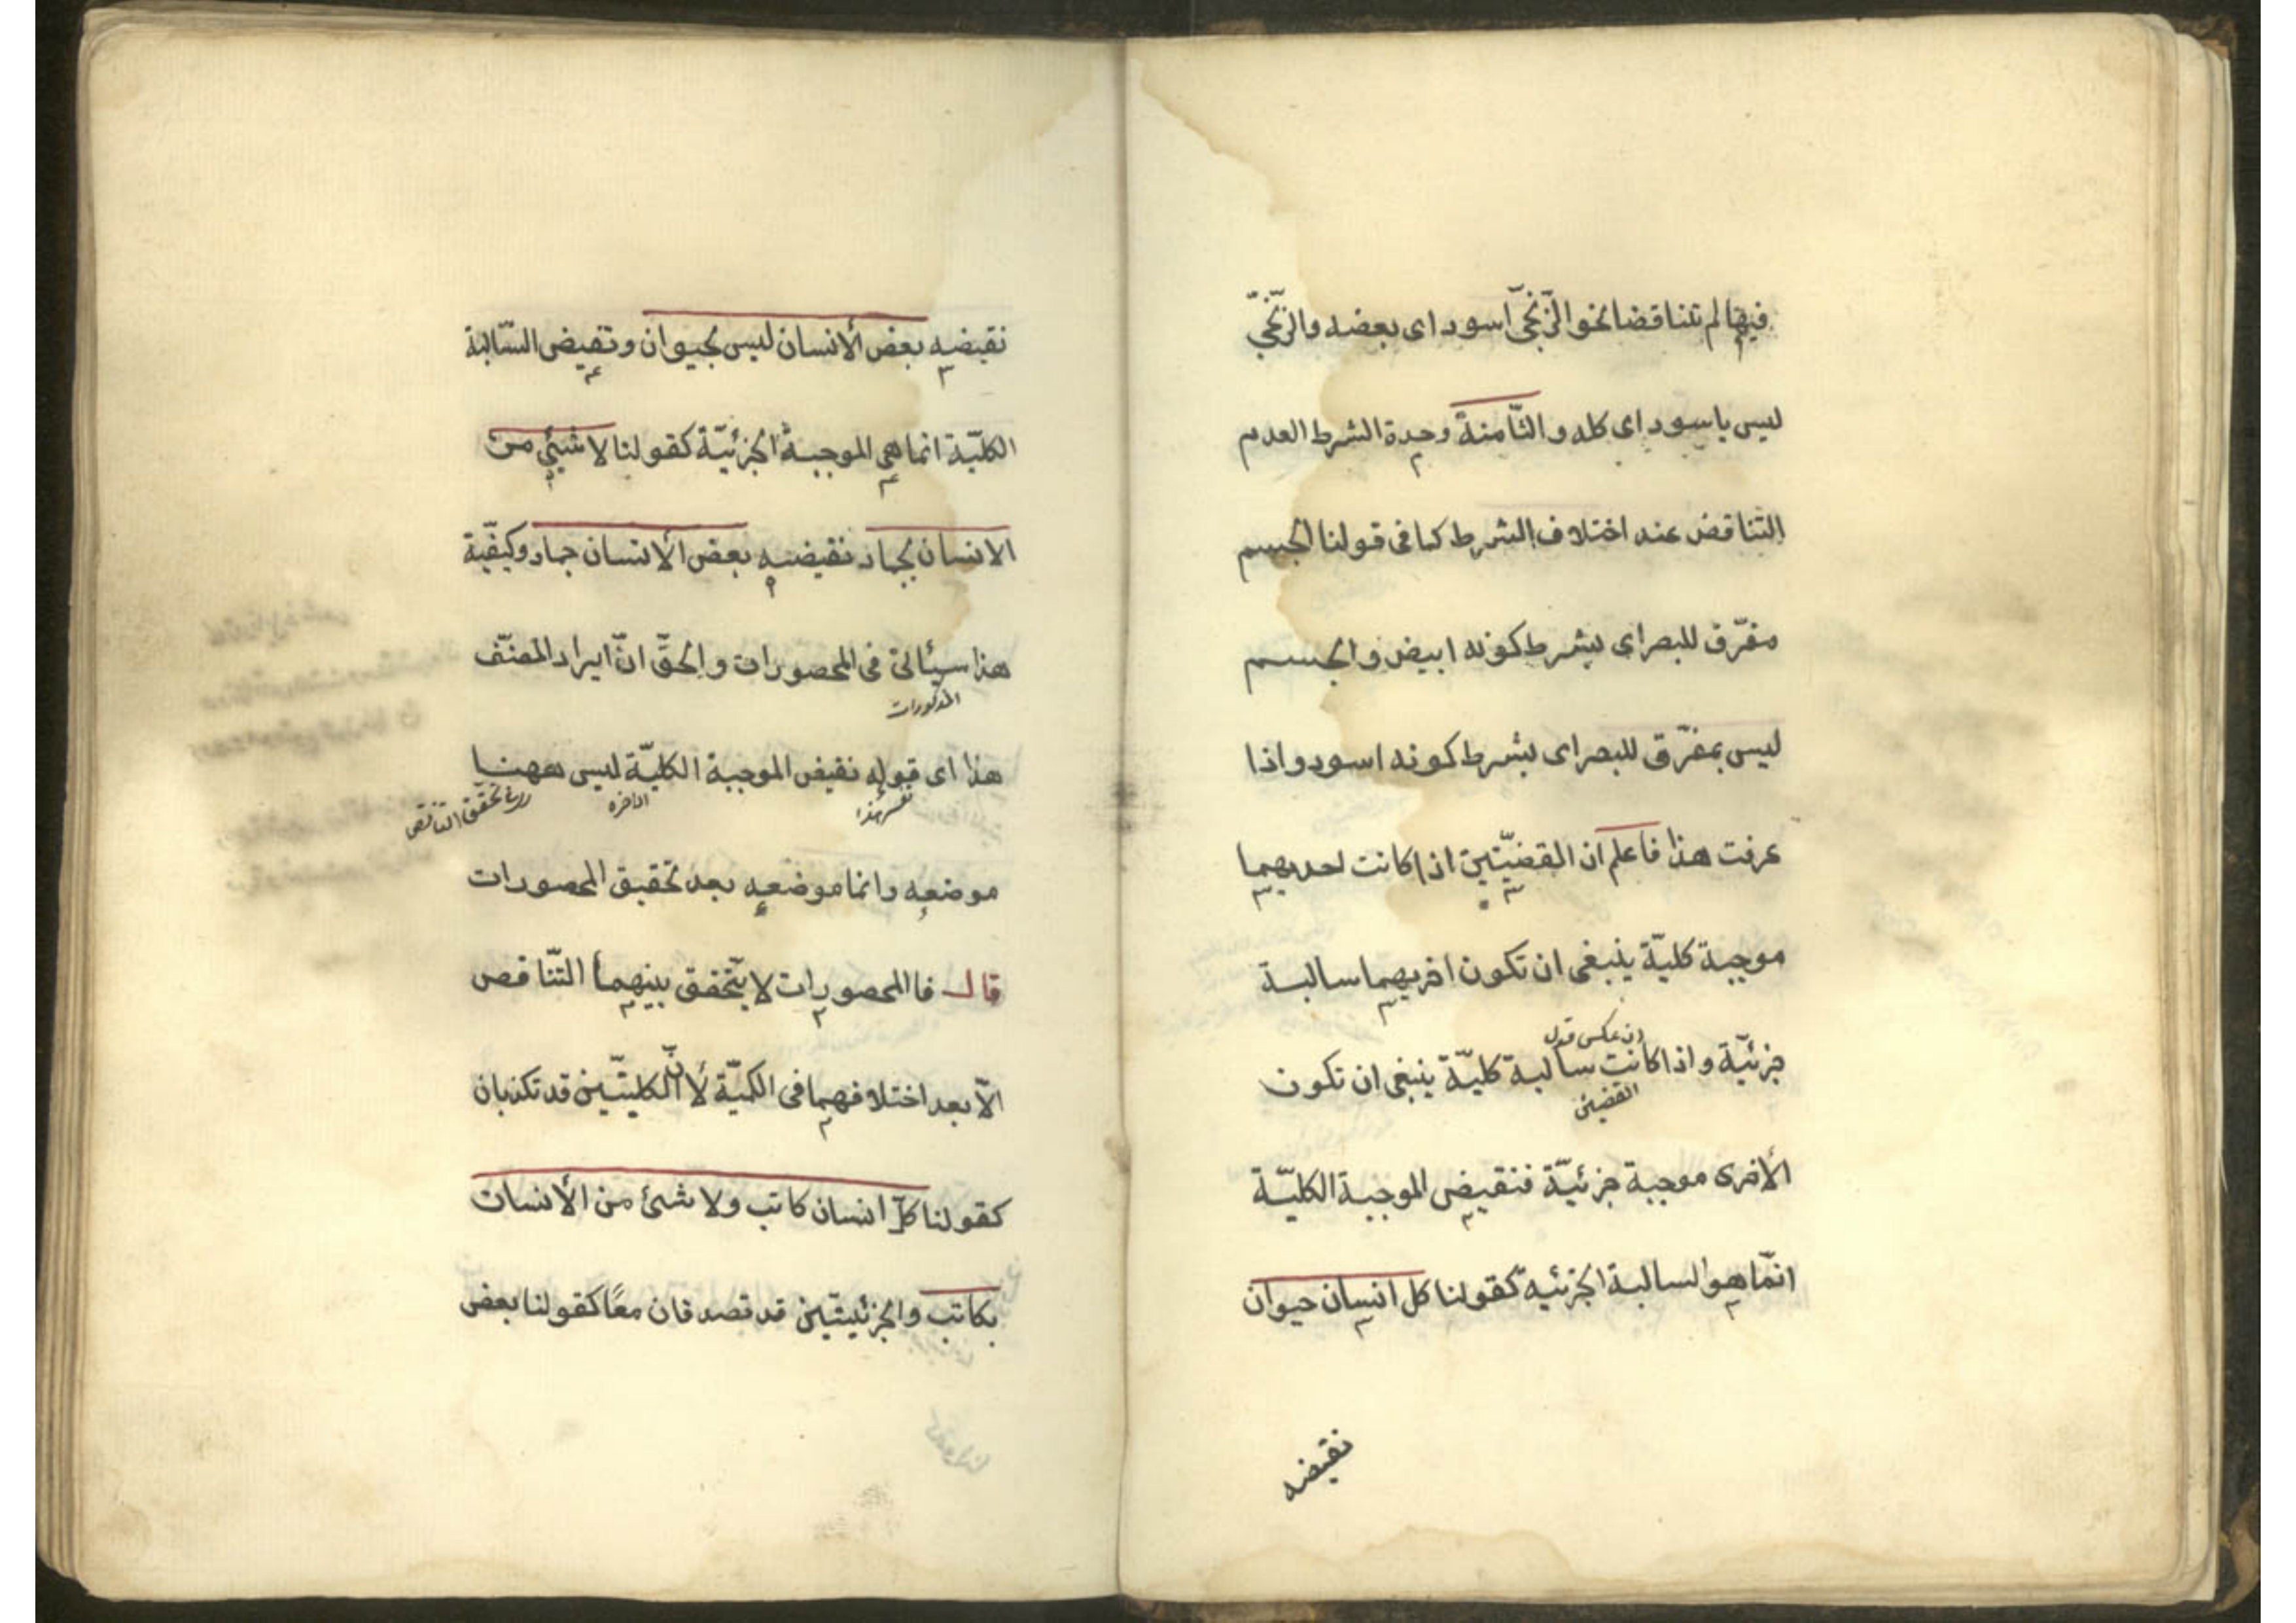 فيهما لم تتناقضا نحو الزّنجىّ اسود اى بعضه والزّنجىّ
ليس باسود اى كله والثّامنة وحدة الشرط العدم
التناقض عند اختلاف الشرط كما فى قولنا الجسم
مفرّق للبصر اى بشرط كونه ابيض والجسم
ليس بمفرّق للبصر اى بشرط كونه اسود واذا
عرفت هذا فاعلم ان القضيّتين اذا كانت احديهما
موجبة كليّة ينبغى ان تكون اخريهما سالبة
جزئيّة واذا كانت سالبة كليّة ينبغى ان تكون
القضيتين
الأخرى موجبة جزئيّة فنقيض الموجبة الكليّة
انّما هو السالبة الجزئية كقولنا كل انسان حيوان
نقيضه
نقيضه بعض الأنسان ليس بحيوان ونقيض السّالبة
الكليّة انما هى الموجبة الجزئيّة كقولنا لا شيئ من
الانسان بجماد نقيضه بعض الأنسان جماد وكيفيّة
هذا سيئاتى فى المحصورات والحقّ انّ ايراد المصنّف
المذكورات
هذا اى قوله نقيض الموجبة الكليّة ليس ههنا
تحقق التناقض
موضعه وانما موضعه بعد تحقيق المحصورات
قال فا المحصورات لا يتحقق بينهما التّناقص
الاّ بعد اختلافهما فى الكميّة لأنّ الكليتّين قد تكذبان
كقولنا كلّ انسان كاتب ولا شئ من الأنسان
بكاتب والجزئيتّين قد تصدقان معًا كقولنا بعض